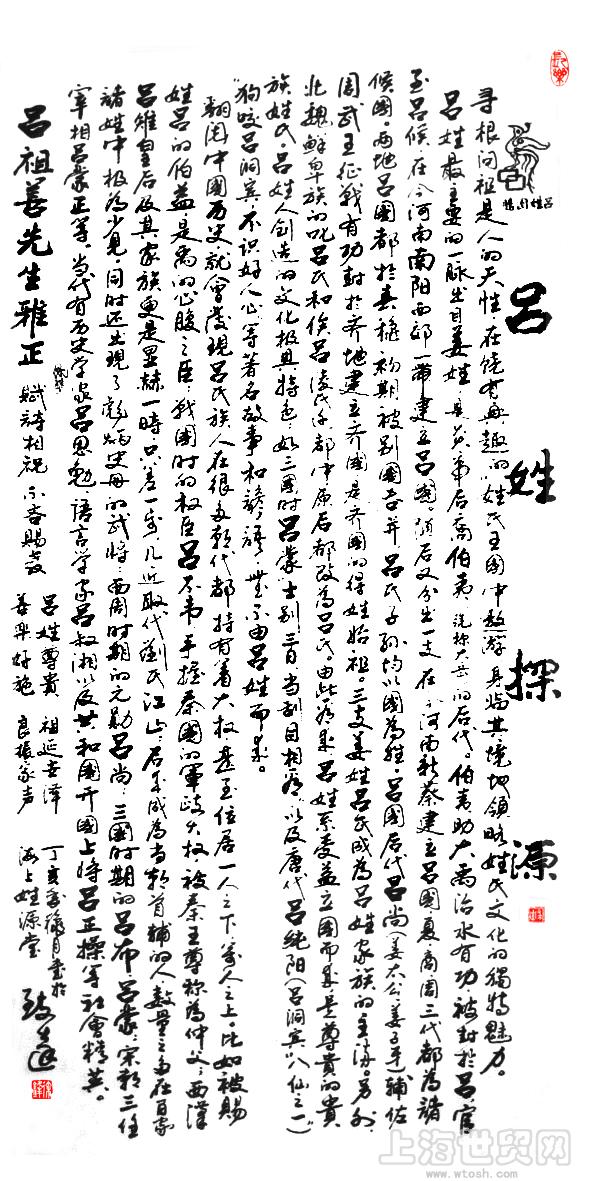 吕姓探源
寻根问祖是人的天性,在饶有兴趣的姓氏王国中遨游,身临其境地领略姓氏文化的独特魅力。
吕姓最主要的一脉出自姜姓,是炎帝后裔伯夷的后代。伯夷助大禹治水有功被封於吕,官
至吕候,在今河南南阳西部一带建立吕國。随后又分出一支在河南新蔡建立吕國,夏商周三代都为諸
候國。两地吕國都於春秋初期被别國吞并,吕氏子孙均以國為姓。吕國后代吕尚(姜太公、姜子牙)辅佐
周武王征战有功封於齐地建立齐國,是齐國的得姓始祖。三支姜姓吕氏成為吕姓家族的主流。另外
北魏鲜卑族的叱吕氏和俟吕陵氏于都中原后都改為吕氏。由此看来吕姓系受益立國而来,是尊貴的貴
族姓氏。吕姓人创造的文化极具特色,如三國时吕蒙士别三日,当刮目相看,以及唐代吕纯阳(吕洞宾八仙之一)
狗咬吕洞宾,不识好人心等著名故事和諺语,無不由吕姓而来。
翻閱中國历史就會發現吕氏族人在很多朝代都持有着大权,甚至位居一人之下,萬人之上。比如被賜
姓吕的伯益是禹的心腹之臣,戰國时的权臣吕不韦手握秦國的軍政大权被秦王尊称為仲父,西漢
吕雉皇后及其家族更是显赫一时,只差一步几近取代劉氏江山,后来成為当朝首辅的人,数量之多在百家
諸姓中极為少見。同时还出現了彪炳史册的武将:西周时期的元勋吕尚、三國时期的吕布、吕蒙;宋朝三任
宰相吕蒙正等。当代有历史学家吕思勉,语言学家吕叔湘以及共和國开國上将吕正操等社會精英。
吕祖善先生雅正
賦詩相祝 不吝賜教
吕姓尊貴 祖延去泽
善樂好施 良振家声
丁亥年
海上姓源堂
上海世贸网
www.wtosh.com